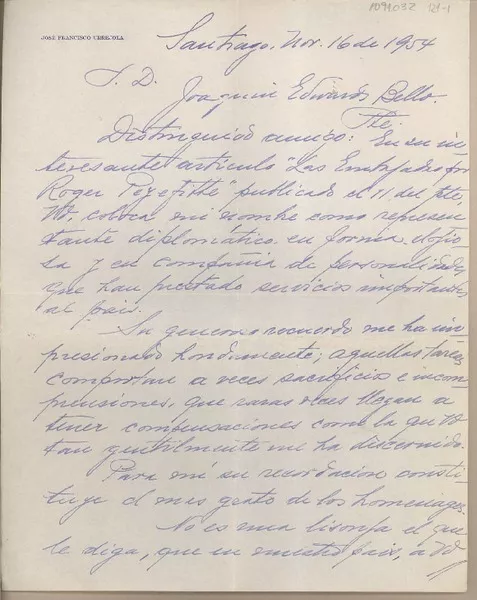 1091032 121-1
JOSÉ FRANCISCO URREJOLA
Santiago, Nov. 16 de 1954
S. D.
Joaquin Edwards Bello.
Pte.
Distinguido amigo: En su in
teresante artículo "Las Embajadas por
Roger Peyefitte" publicado el 11 del pte,
Ud. coloca mi nombre como represen
tante diplomático en forma elogio
sa y en compañia de personalidades
que han prestado servicios importantes
al pais.
Su generoso recuerdo me ha im
presionado hondamente; aquellas tareas
comportan a veces sacrificios e incom
prensiones, que raras veces llegan a
tener compensaciones como la que Ud
tan gentilmente me ha discernido.
Para mí su recordacion consti
tuye el mas grato de los homenajes.
No es una lisonja el que
le diga, que en nuestro pais, a Ud